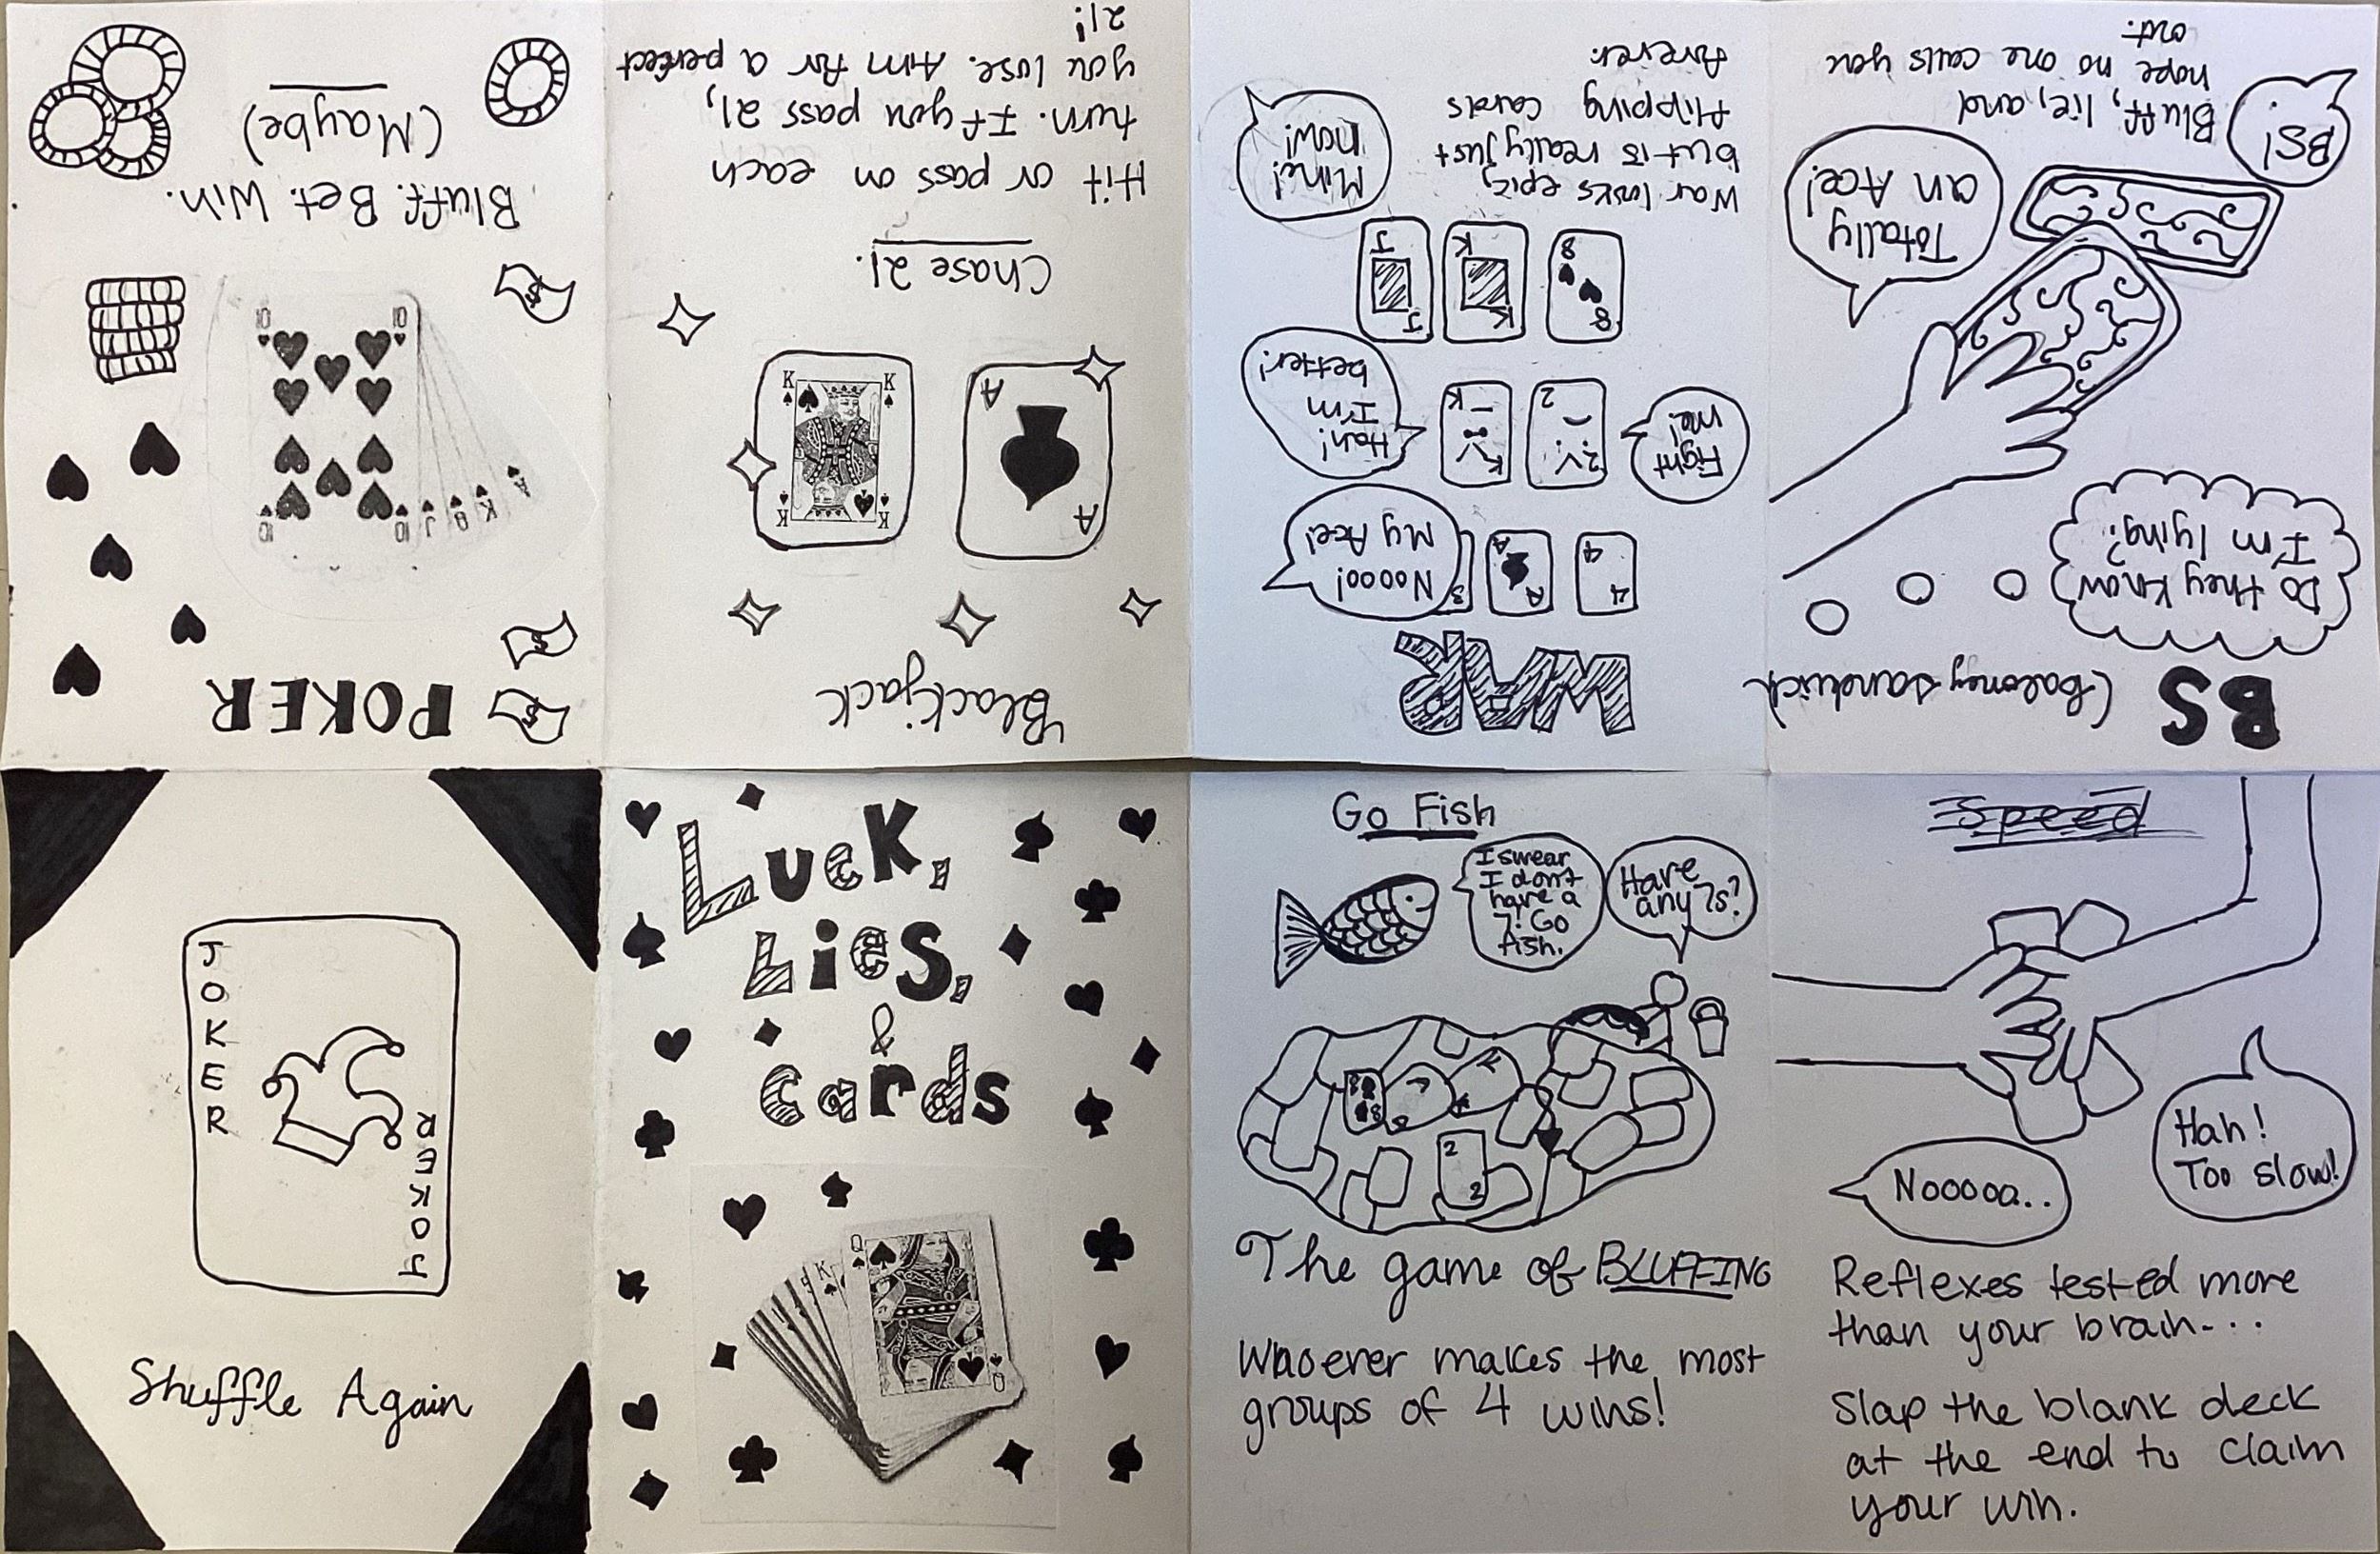 Luck,
Lies,
&
Cards
Q
K
Q
Go Fish
I swear
I don't
have a
7! Go
Fish.
Have
any 7s?
8
8
7
2
2
The game of BLUFFING
Whoever makes the most
groups of 4 wins!
Speed
Hah!
Too slow!
Nooooo..
Reflexes tested more
than your brain...
Slap the blank deck
at the end to claim
your win.
BS
(baloney sandwich)
Do they know
I'm lying?
Totally
an Ace!
BS!
Bluff, lie, and
hope no one calls you
out.
WAR
4
4
A
A
3
Noooo!
My Ace!
Fight
me!
2
2
K
K
Hah!
I'm
better!
8
8
K
K
J
J
Mine!
now!
War looks epic,
but is really just
flipping cards
forever.
Blackjack
A
A
K
K
K
K
Chase 21.
Hit or pass on each
turn. If you pass 21,
you lose. Aim for a perfect
21!
POKER
$
$
A
K
Q
J
10
10
10
10
$
Bluff. Bet. Win.
(Maybe)
JOKER
JOKER
Shuffle Again